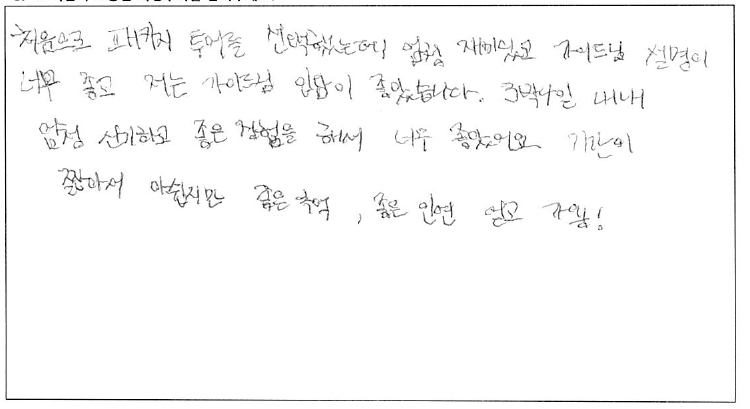 처음으로 패키지 투어를 선택했는데 엄청 재미있고 가이드님 설명이
너무 좋고 저는 가이드님 입담이 좋았습니다. 3박4일 내내
엄청 신기하고 좋은 경험을 해서 너무 좋았어요 기간이
짧아서 아쉽지만 좋은 추억, 좋은 인연 얻고 가욤!